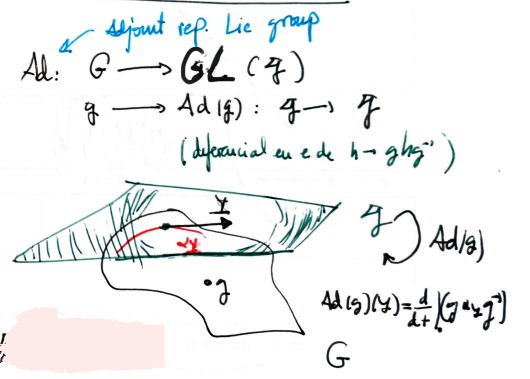 Adjoint rep. Lie group
Ad: G → GL(𝔤)
g → Ad(g): 𝔤 → 𝔤
(diferencial en e de h → ghg⁻¹)
Y
αY
𝔤
Ad(g)
•g
Ad(g)(Y) = d/dt|₀(g αY g⁻¹)
G